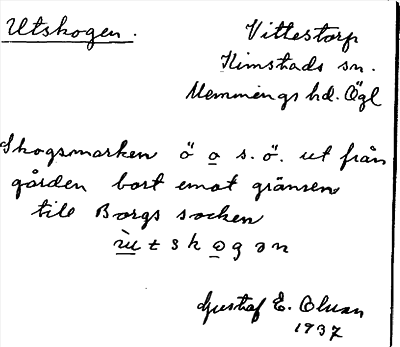 Utskogen.
Vittestorp
Kimstads sn.
Memmings hd. Ögl
Skogsmarken ö o s.ö. ut från
gården bort emot gränsen
till Borgs socken
ùtskogən
Gustaf E. Olsson
1937